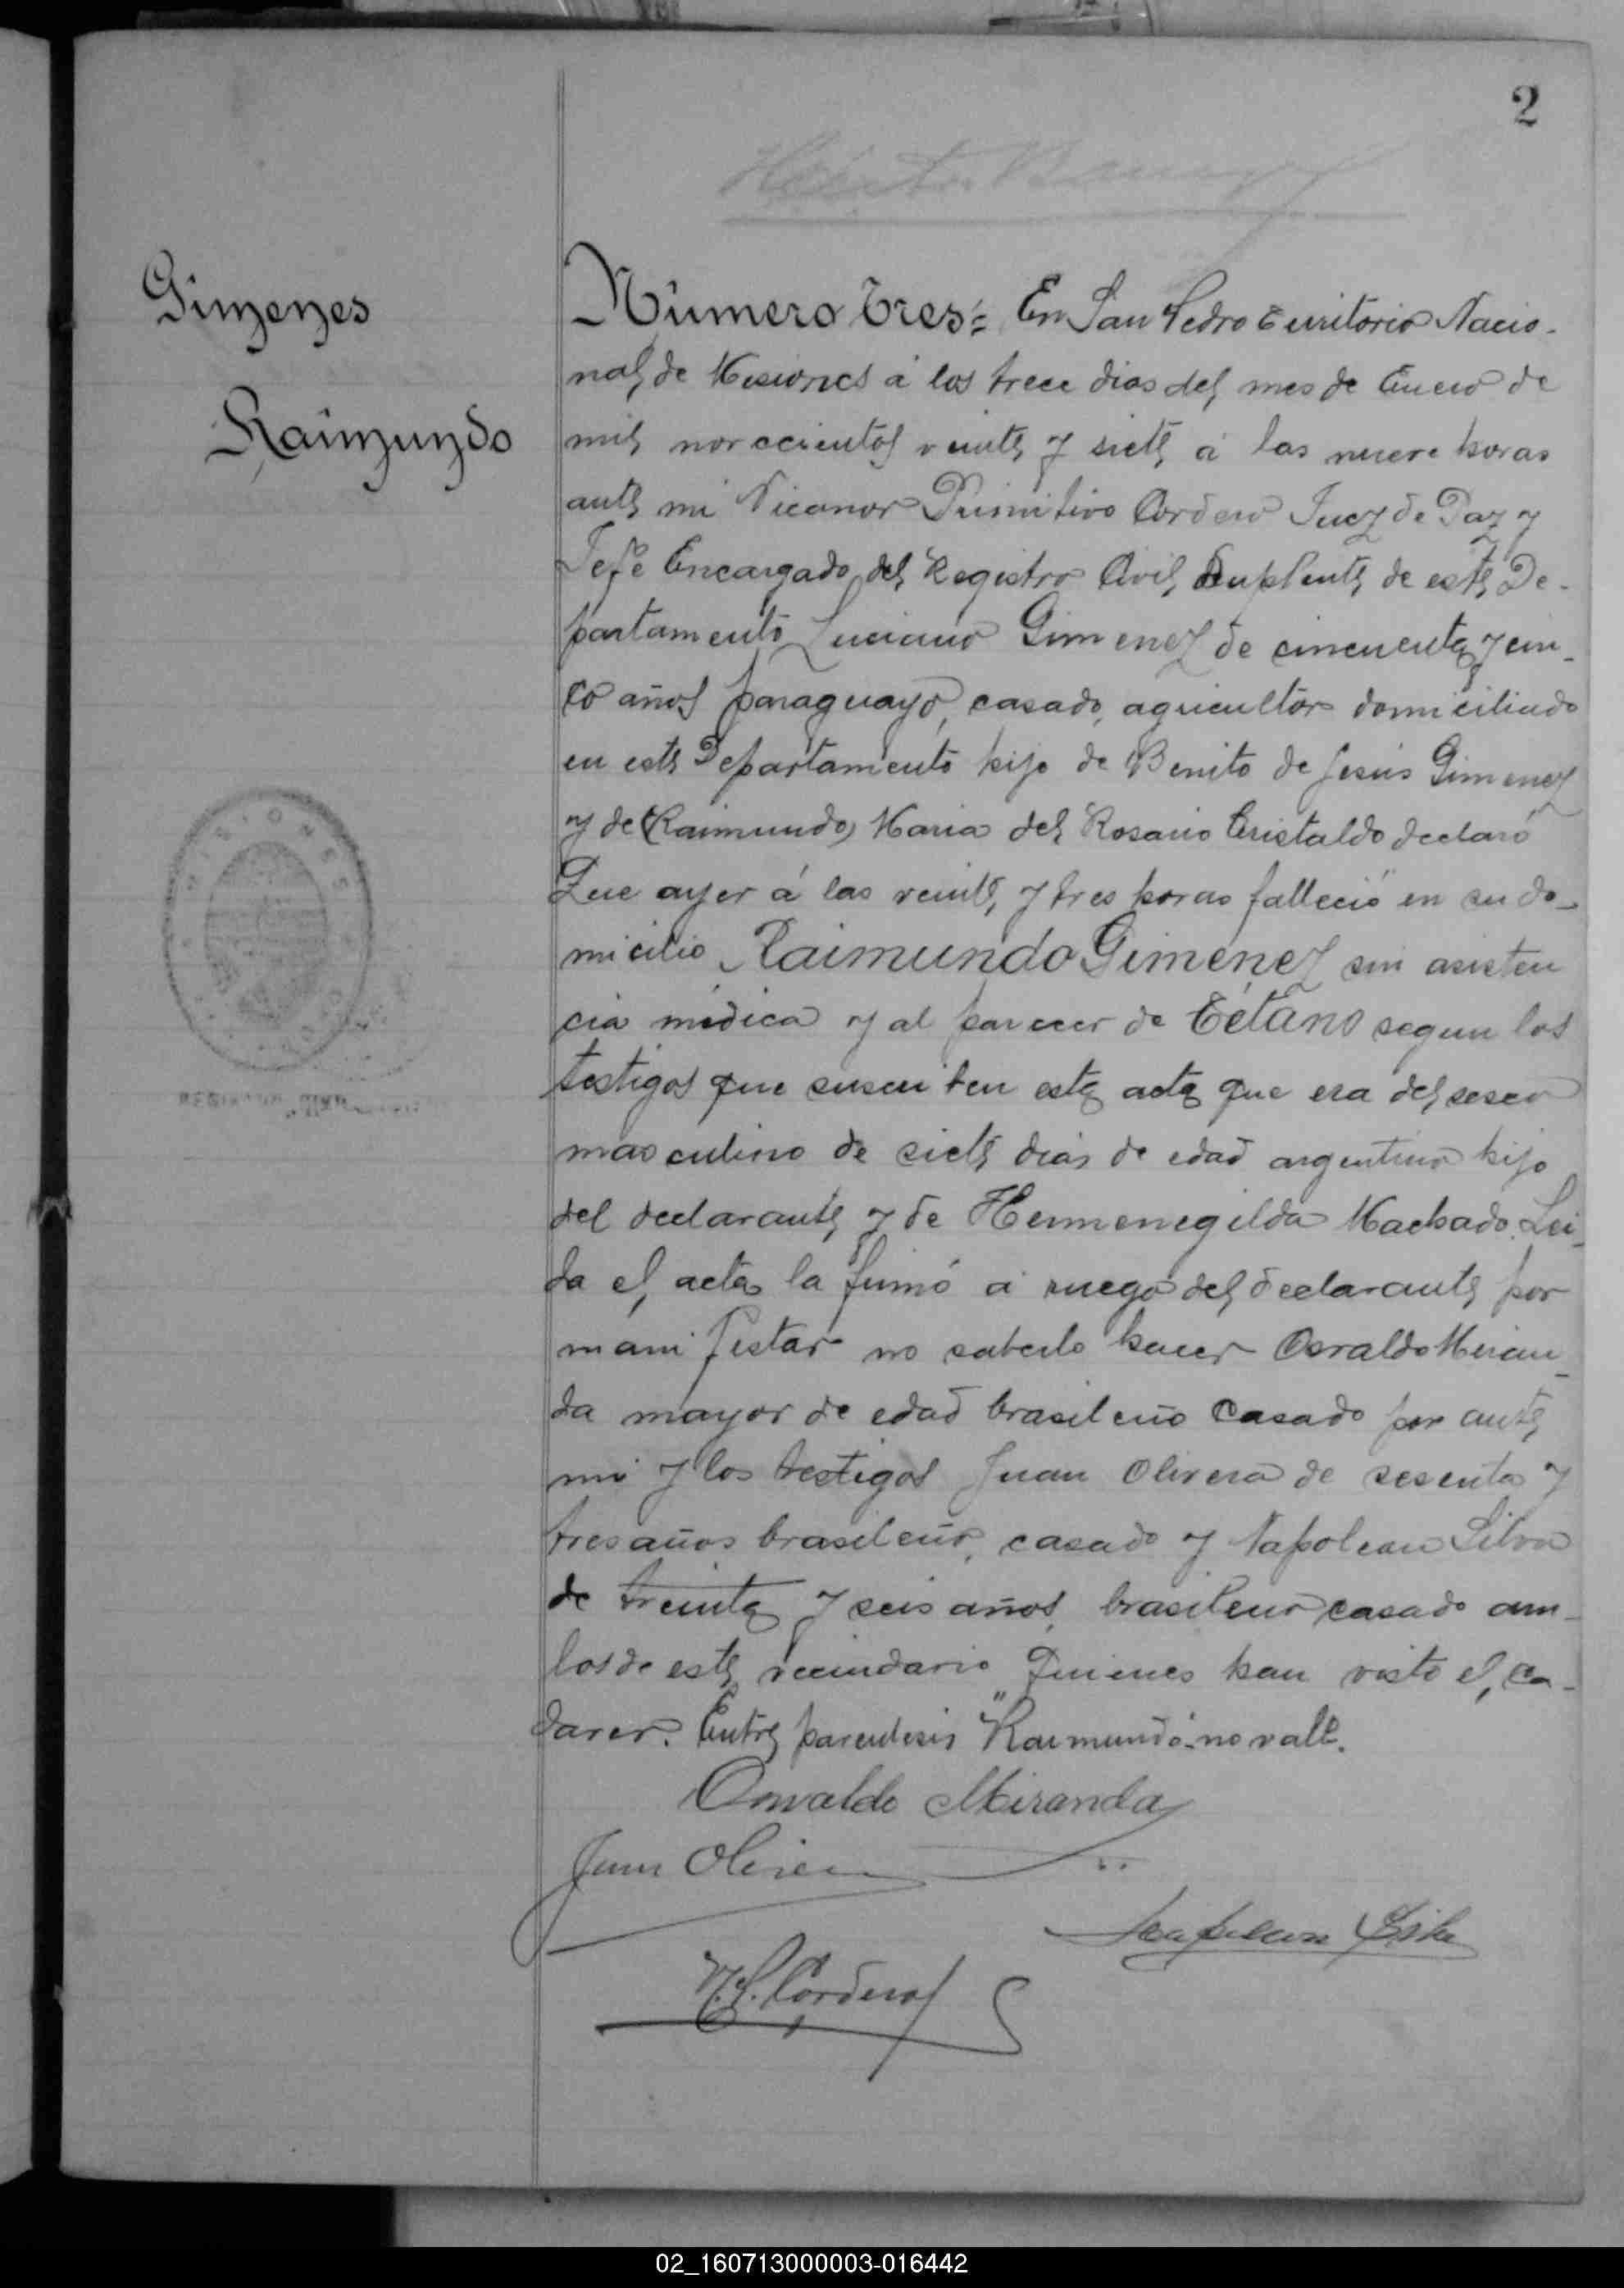 2
Gimenes
Raimundo
Número tres: En San Pedro Territorio Nacio-
nal de Misiones á los trece dias del mes de Enero de
mil novecientos veinte y siete á las nueve horas
ante mi Nicanor Primitivo Cordero Juez de Paz y
Jefe Encargado del Registro Civil Suplente de este De-
partamento Luciano Gimenez de cincuenta y cin-
co años paraguayo, casado, agricultor domiciliado
en este Departamento hijo de Benito de Jesús Gimenez
y de (Raimundo) Maria del Rosario Cristaldo declaró
Que ayer á las veinte y tres horas falleció en su do-
micilio Raimundo Gimenez sin asisten
cia médica y al parecer de Tétano segun los
testigos que suscriben esta acta que era del sexo
masculino de siete dias de edad argentino hijo
del declarante y de Hermenegilda Machado. Lei-
da el acta la firmó á ruego del declarante por
manifestar no saberlo hacer Osvaldo Miran-
da mayor de edad brasileño casado por ante
mi y los testigos Juan Olivera de sesenta y
tres años brasileño, casado y Napolean Silva
de treinta y seis años, brasilero casado am-
bos de este vecindario quienes han visto el ca-
daver. Entre parentesis "Raimundo" no vale.
Osvaldo Miranda
Juan Olivera
Napolean Silva
N.P. Cordero
MISIONES
02_160713000003-016442